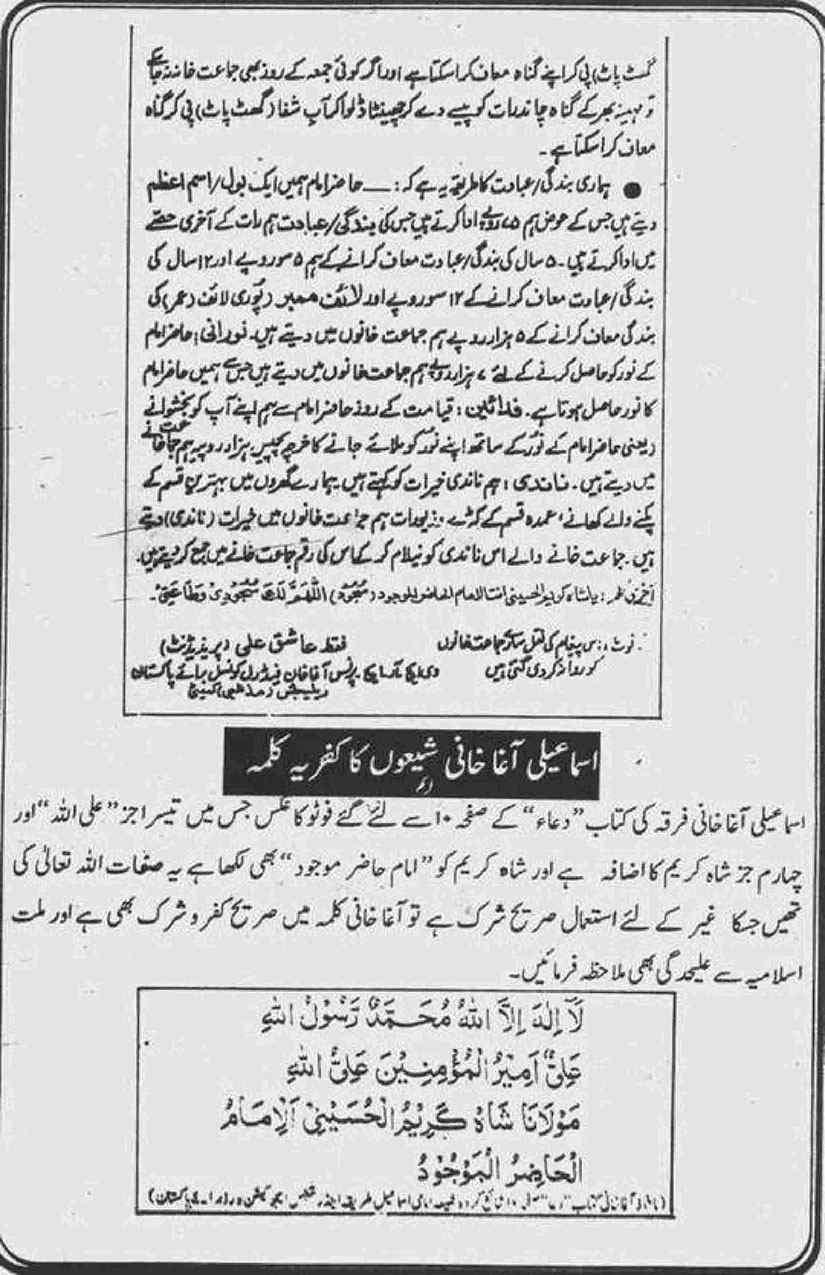 گھٹ پاٹ) پی کر اپنے گناہ معاف کرا سکتا ہے اور اگر کوئی جمعہ کے روز بھی جماعت خانہ نہ جائے
تو مہینہ بھر کے گناہ چاند رات کو پیسے دے کر چھینٹا ڈلوا کر آبِ شفا (گھٹ پاٹ) پی کر گناہ
معاف کرا سکتا ہے۔
● ہماری بندگی/عبادت کا طریقہ یہ ہے کہ: — حاضر امام ہمیں ایک بول/اسم اعظم
دیتے ہیں جس کے عوض ہم ۷۵ روپے ادا کرتے ہیں جس کی بندگی/عبادت ہم رات کے آخری حصے
میں ادا کرتے ہیں۔ ۵ سال کی بندگی/عبادت معاف کرانے کے ہم ۵ سو روپے اور ۱۲ سال کی
بندگی/عبادت معاف کرانے کے ۱۲ سو روپے اور لائف ممبر (پوری لائف (عمر) کی
بندگی معاف کرانے کے ۵ ہزار روپے ہم جماعت خانوں میں دیتے ہیں۔ نورانی: حاضر امام
کے نور کو حاصل کرنے کے لئے ۷ ہزار روپے ہم جماعت خانوں میں دیتے ہیں جس سے ہمیں حاضر امام
کا نور حاصل ہوتا ہے۔ فدائین: قیامت کے روز حاضر امام سے ہم اپنے آپ کو بخشوانے
(یعنی حاضر امام کے نور کے ساتھ اپنے نور کو ملائے جانے کا خرچ پچیس ہزار روپیہ ہم جماعت خانے
میں دیتے ہیں۔ ناندی: ہم ناندی خیرات کو کہتے ہیں ہمارے گھروں میں بہترین قسم کے
پکنے والے کھانے، عمدہ قسم کے کپڑے وزیورات ہم جماعت خانوں میں خیرات (ناندی) دیتے
ہیں۔ جماعت خانے والے اس ناندی کو نیلام کر کے اس کی رقم جماعت خانے میں جمع کر دیتے ہیں۔
یا شاہ کریم الحسینی انت الامام الحاضر الموجود (سُجُود) اَللّٰهُمَّ لَكَ سُجُوْدِیْ وَطَاعَتِیْ۔
نوٹ: اس پیغام کی نقل جماعت خانوں
کو روانہ کر دی گئی ہیں
فقط عاشق علی (پریذیڈنٹ)
پرنس آغا خان فیڈرل کونسل برائے پاکستان
اسماعیلی آغا خانی شیعوں کا کفریہ کلمہ
اسماعیلی آغا خانی فرقہ کی کتاب ”دعاء“ کے صفحہ ۱۰ سے لئے گئے فوٹو کا عکس جس میں تیسرا جز ”علی اللہ“ اور
چہارم جز شاہ کریم کا اضافہ ہے اور شاہ کریم کو ”امام حاضر موجود“ بھی لکھا ہے یہ صفات اللہ تعالیٰ کی
تھیں جسکا غیر کے لئے استعمال صریح شرک ہے تو آغا خانی کلمہ میں صریح کفر و شرک بھی ہے اور ملت
اسلامیہ سے علیحدگی بھی ملاحظہ فرمائیں۔
لَآ اِلٰهَ اِلَّا اللهُ مُحَمَّدٌ رَّسُوْلُ اللهِ
عَلِیٌّ اَمِیْرُ الْمُؤْمِنِیْنَ عَلِیُّ اللهِ
مَوْلَانَا شَاهْ كَرِیْمُ الْحُسَیْنِیْ اَلْاِمَامُ
الْحَاضِرُ الْمَوْجُوْدُ